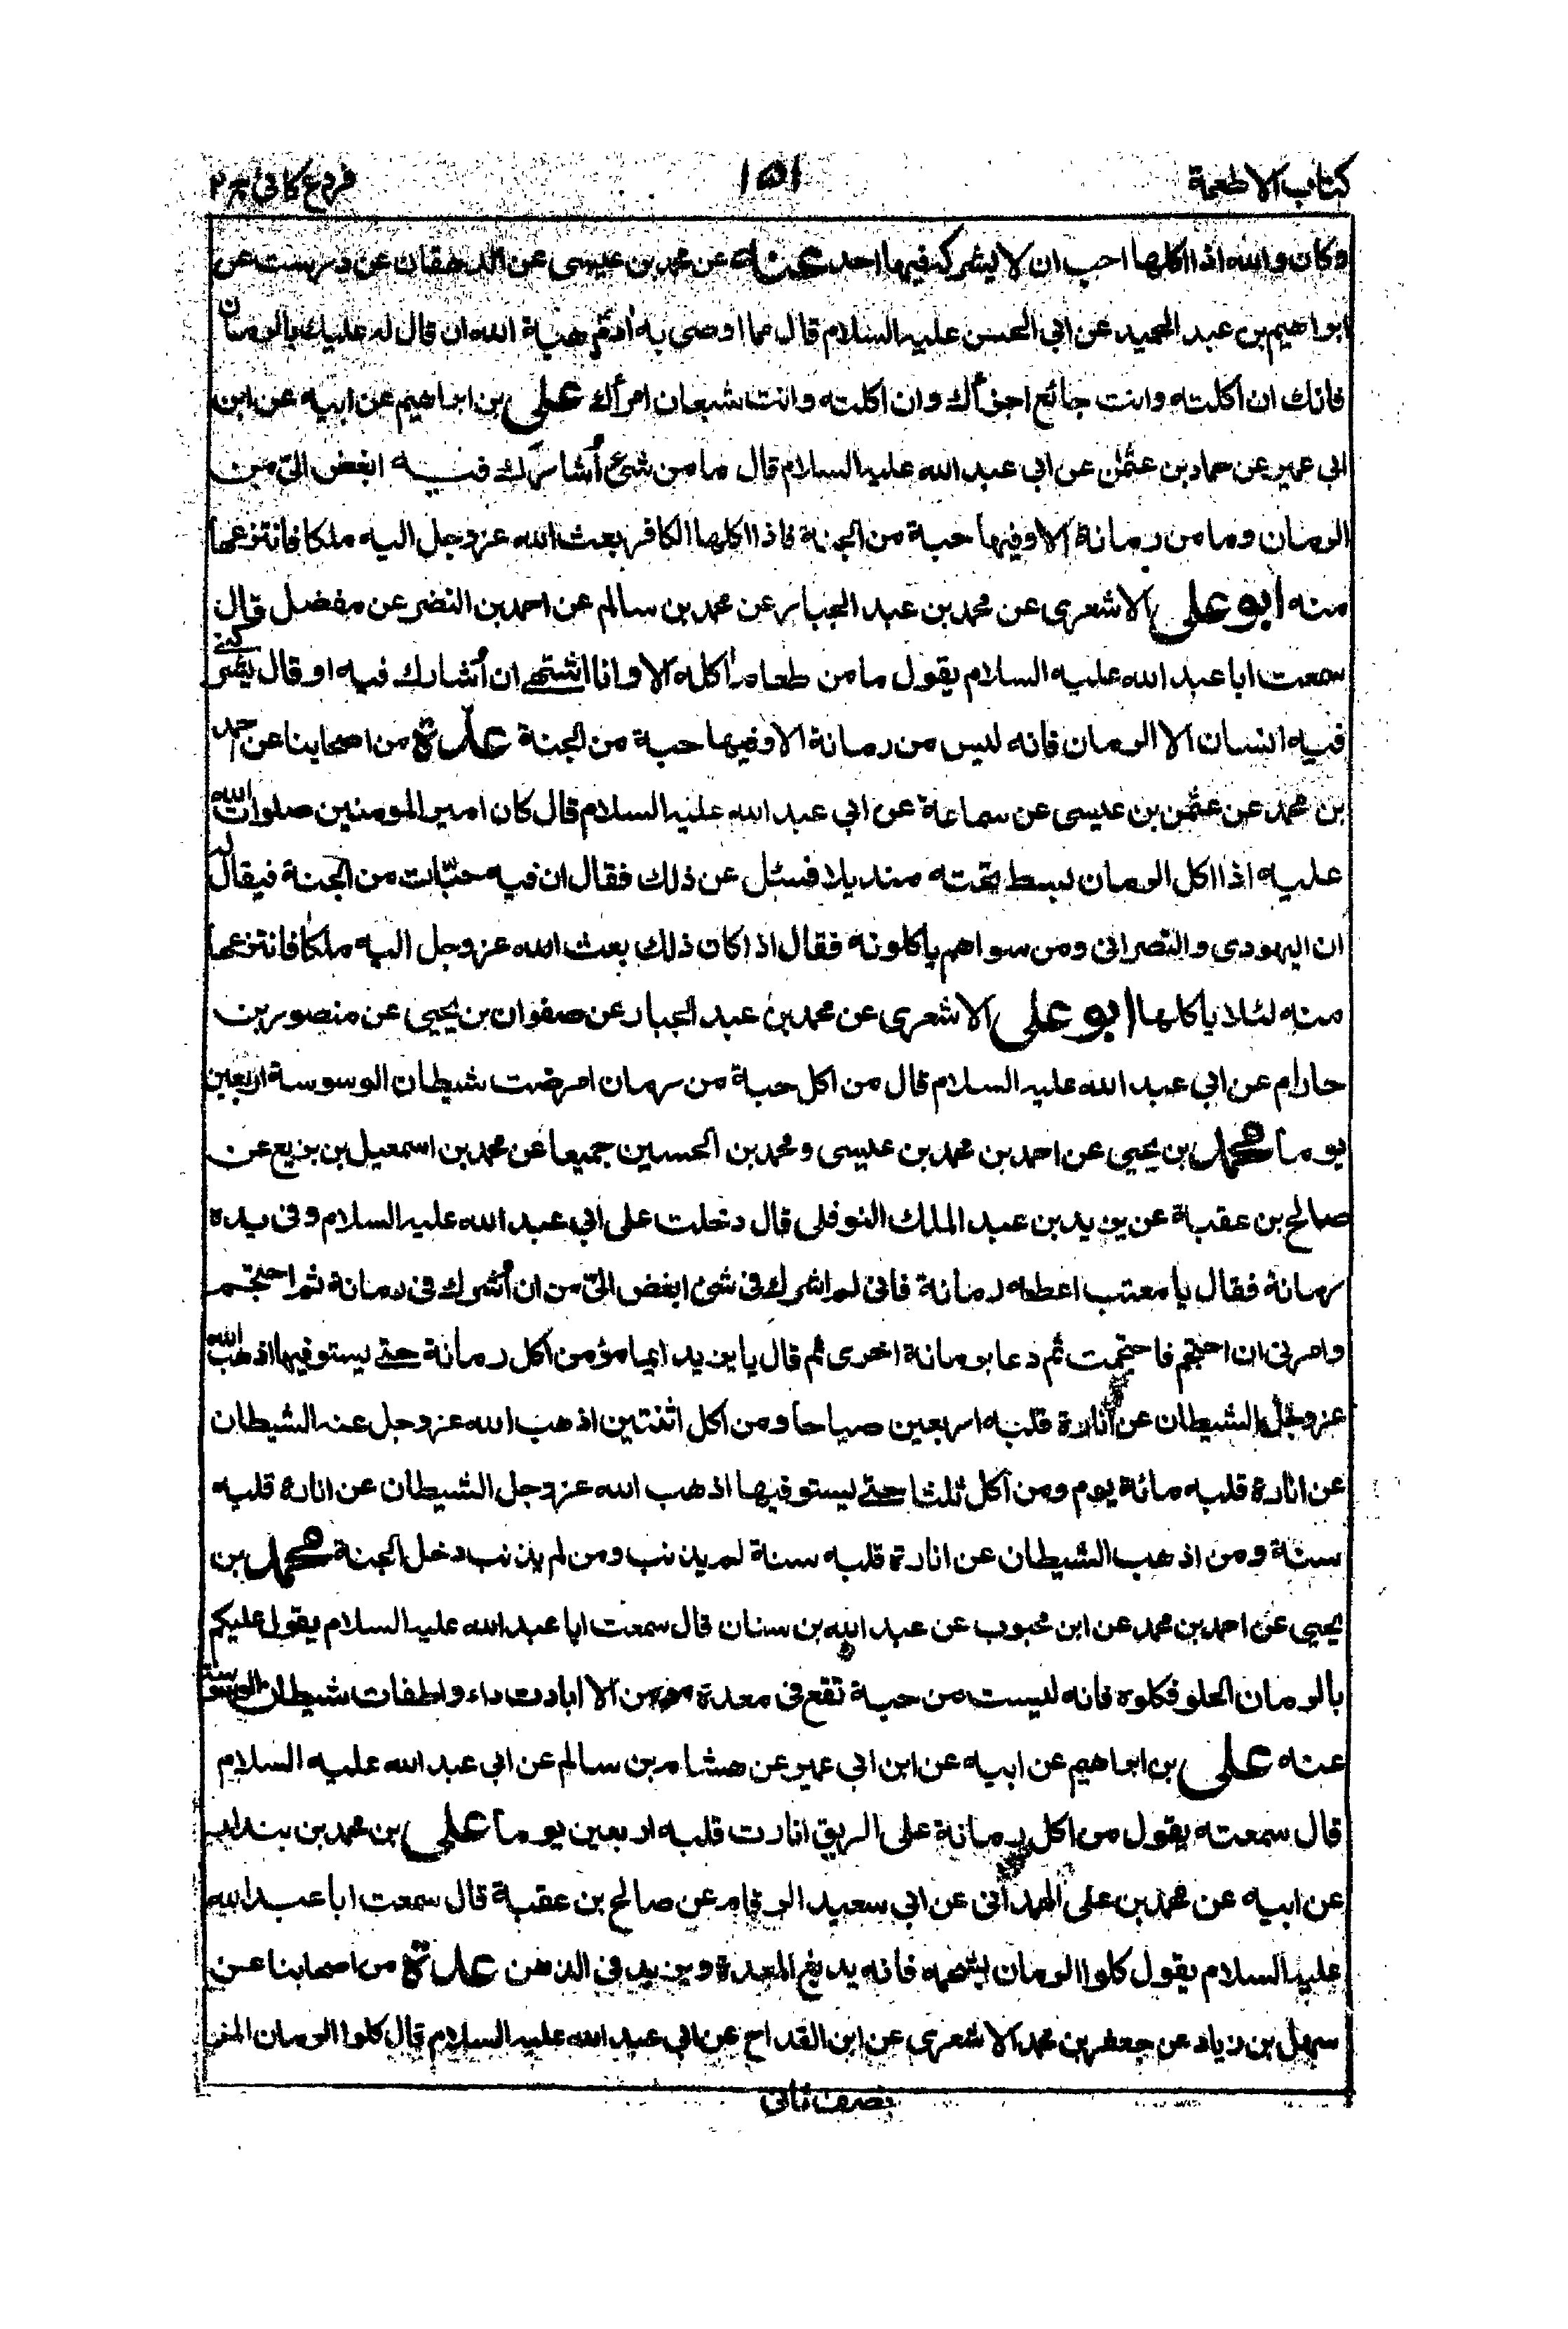 كتاب الاطعمة ١٥١ فروع كافي ج ٢
وكان والله اذا اكلها احب ان لا يشركه فيها احد عنه عن محمد بن عيسى عن الدهقان عن درست عن
ابراهيم بن عبد الحميد عن ابي الحسن عليه السلام قال مما اوصى به اٰدم هبة الله ان قال له عليك بالرمان
فانك ان اكلته وانت جائع اجزأك وان اكلته وانت شبعان امرأك على بن ابراهيم عن ابيه عن ابن
ابي عمير عن حماد بن عثمٰن عن ابي عبد الله عليه السلام قال ما من شئ أشارك فيه ابغض الىّ من
الرمان وما من رمانة الا وفيها حبة من الجنة فاذا اكلها الكافر بعث الله عز وجل اليه ملكا فانتزعها
منه ابو على الاشعرى عن محمد بن عبد الجبار عن محمد بن سالم عن احمد بن النضر عن مفضل قال
سمعت ابا عبد الله عليه السلام يقول ما من طعام اٰكله الا وانا اشتهى ان أشارك فيه او قال يشركنى
فيه انسان الا الرمان فانه ليس من رمانة الا وفيها حبة من الجنة عدة من اصحابنا عن احمد
بن محمد عن عثمٰن بن عيسى عن سماعة عن ابي عبد الله عليه السلام قال كان امير المومنين صلوات الله
عليه اذا اكل الرمان بسط تحته منديلا فسئل عن ذلك فقال ان فيه حبّات من الجنة فيقال له
ان اليهودى والنصرانى ومن سواهم ياكلونه فقال اذا كان ذلك بعث الله عز وجل اليه ملكا فانتزعها
منه لئلا ياكلها ابو على الاشعرى عن محمد بن عبد الجبار عن صفوان بن يحيى عن منصور بن
حازم عن ابي عبد الله عليه السلام قال من اكل حبة من رمان امرضت شيطان الوسوسة اربعين
يوما محمد بن يحيى عن احمد بن محمد بن عيسى ومحمد بن الحسين جميعا عن محمد بن اسمعيل بن بزيع عن
صالح بن عقبة عن يزيد بن عبد الملك النوفلى قال دخلت على ابي عبد الله عليه السلام وفى يده
رمانة فقال يا معتب اعطه رمانة فانى لم اشرك فى شئ ابغض الىّ من ان أشرك فى رمانة ثم احتجم
وامرنى ان احتجم فاحتجمت ثم دعا برمانة اخرى ثم قال يا يزيد ايما مؤمن اكل رمانة حتى يستوفيها اذهب الله
عز وجل الشيطان عن انارة قلبه اربعين صباحا ومن اكل اثنتين اذهب الله عز وجل عنه الشيطان
عن انارة قلبه مائة يوم ومن اكل ثلثا حتى يستوفيها اذهب الله عز وجل الشيطان عن انارة قلبه
سنة ومن اذهب الشيطان عن انارة قلبه سنة لم يذنب ومن لم يذنب دخل الجنة محمد بن
يحيى عن احمد بن محمد عن ابن محبوب عن عبد الله بن سنان قال سمعت ابا عبد الله عليه السلام يقول عليكم
بالرمان الحلو فكلوه فانه ليست من حبة تقع فى معدة مؤمن الا ابادت داء واطفات شيطان الوسوسة
عنه على بن ابراهيم عن ابيه عن ابن ابي عمير عن هشام بن سالم عن ابي عبد الله عليه السلام
قال سمعته يقول من اكل رمانة على الريق انارت قلبه اربعين يوما على بن محمد بن بندار
عن ابيه عن محمد بن على الهمدانى عن ابي سعيد الرقام عن صالح بن عقبة قال سمعت ابا عبد الله
عليه السلام يقول كلوا الرمان بشحمه فانه يدبغ المعدة ويزيد فى الذهن عدة من اصحابنا عن
سهل بن زياد عن جعفر بن محمد الاشعرى عن ابن القداح عن ابي عبد الله عليه السلام قال كلوا الرمان المز
نصف ثانى